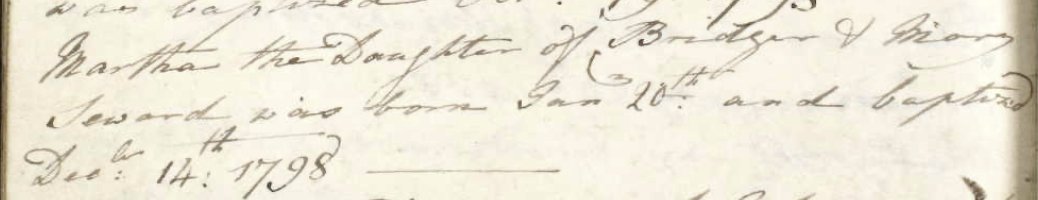 was baptized
Martha the Daughter of Bridger & Mary
Seward was born Jan 20th. and baptized
Decbr: 14th: 1798